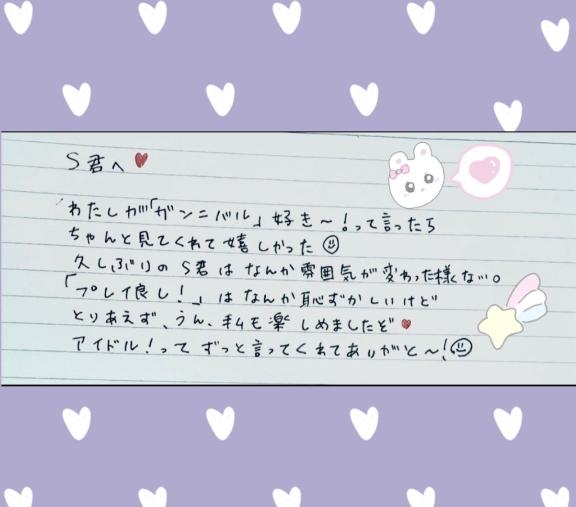 S君へ♥
わたしが「ガンニバル」好き〜！って言ったら
ちゃんと見てくれて嬉しかった☺
久しぶりのS君はなんか雰囲気が変わった様な‥。
「プレイ良し！」はなんか恥ずかしいけど
とりあえず、うん、私も楽しめましたぞ♥
アイドル！ってずっと言ってくれてありがと〜！☺